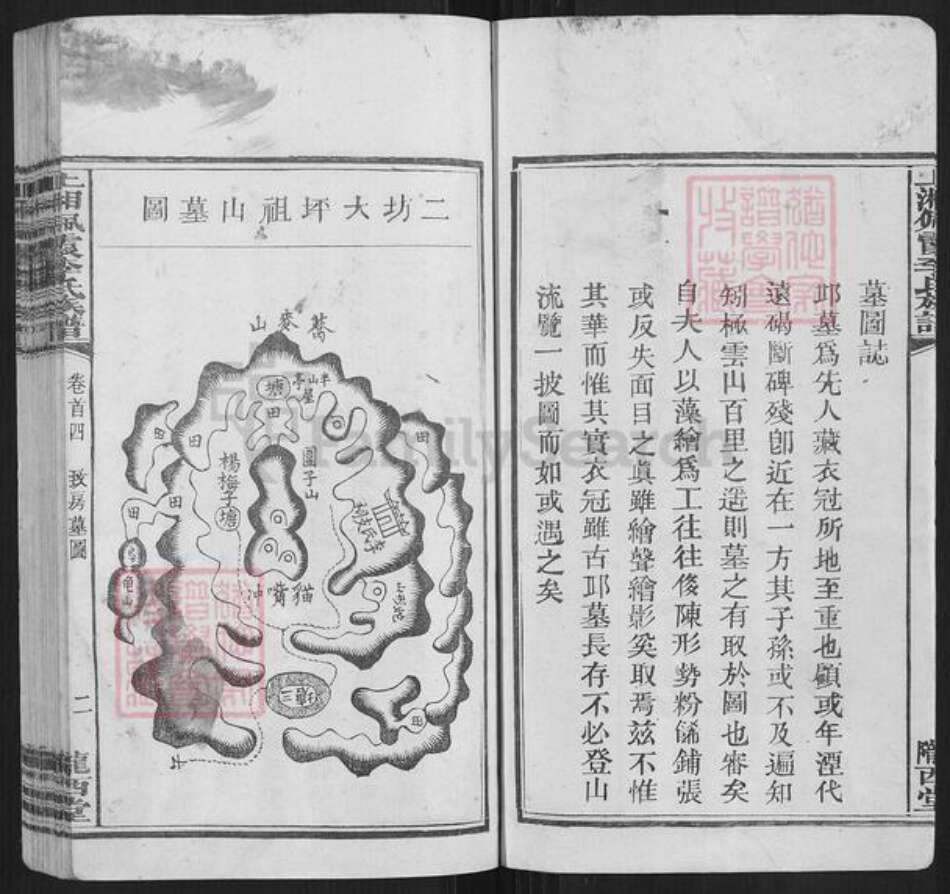 墓圖誌
邱墓爲先人藏衣冠所地至重也顧或年湮代
遠碣斷碑殘卽近在一方其子孫或不及遍知
矧極雲山百里之遥則墓之有取於圖也審矣
自夫人以藻繪爲工往往侈陳形勢粉餙鋪張
或反失面目之眞雖繪聲繪影奚取焉兹不惟
其華而惟其實衣冠雖古邱墓長存不必登山
流覽一披圖而如或遇之矣
上湘佩霞李氏族譜
隴西堂
二坊大坪祖山墓圖
蕎麥山
半山屋亭
塘
田
田
田
田
田
田
圓子山
楊梅子塘
貓嘴冲
龜山
上湘佩霞李氏族譜
卷首四
墓圖
二
隴西堂
FamilySearch